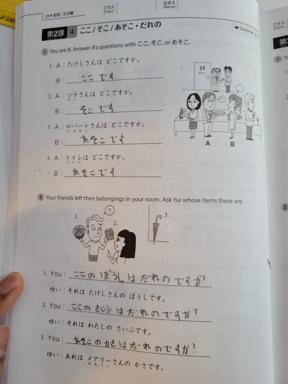 第2課 4 ここ/そこ/あそこ・だれの
① You are B. Answer A's questions with ここ, そこ, or あそこ.
1. A:たけしさんは どこですか。
B: ここ です
2. A:ソラさんは どこですか。
B: そこ です
3. A:ロバートさんは どこですか。
B: あそこ です
4. A:トイレは どこですか。
B: あそこ です
A B
② Your friends left their belongings in your room. Ask Yui whose items these are.
1. 2. 3.
1. You: ここの ぼうし は だれ の ですか?
ゆい:それは たけしさんの ぼうしです。
2. You: ここの さいふ は だれ の ですか?
ゆい:それは わたしの さいふです。
3. You: あそこ の かさ は だれ の ですか?
ゆい:あれは メアリーさんの かさです。